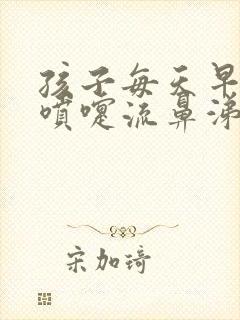 孩子每天早
喷嚏流鼻涕
宋加琦